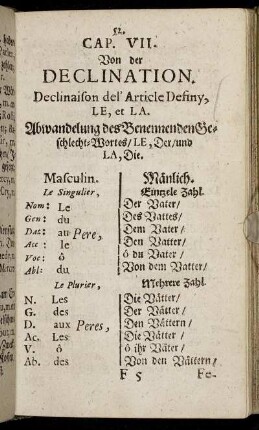 52.
CAP. VII.
Von der
DECLINATION.
Declinaison del' Article Definy,
LE, et LA.
Abwandelung des Benennenden Ge-
schlecht-Wortes/ LE, Der/ und
LA, Die.
Masculin. Männlich.
Le Singulier, Eintzele Zahl.
Nom: Le Der Vater/
Gen: du Des Vattes/
Dat: au Pere, Dem Vater/
Acc: le Den Vatter/
Voc: ô ô du Vater/
Abl: du Von dem Vatter/
Le Plurier, Mehrere Zahl.
N. Les Die Vätter/
G. des Der Vätter/
D. aux Peres, Den Vättern/
Ac. Les Die Vätter/
V. ô ô ihr Väter/
Ab. des Von den Vättern/
F 5 Fe-